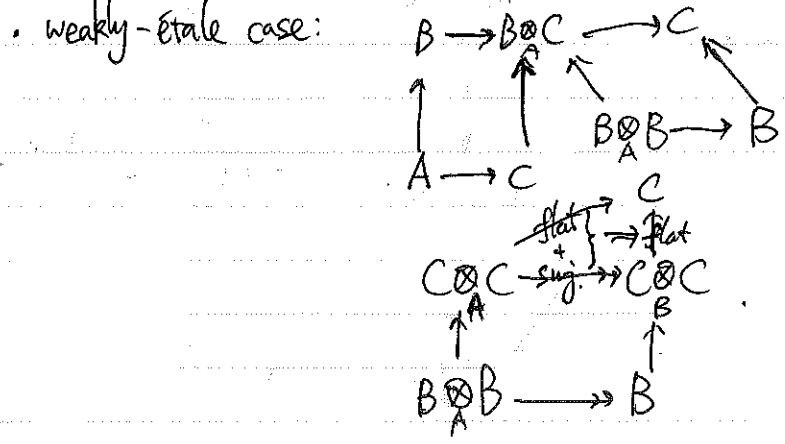 . weakly-étale case: B → B⊗C → C
A
B⊗B → B
A
A → C
C
flat
+
surj. ⇒ flat
C⊗C ↠ C⊗C .
A B
B⊗B ↠ B
A